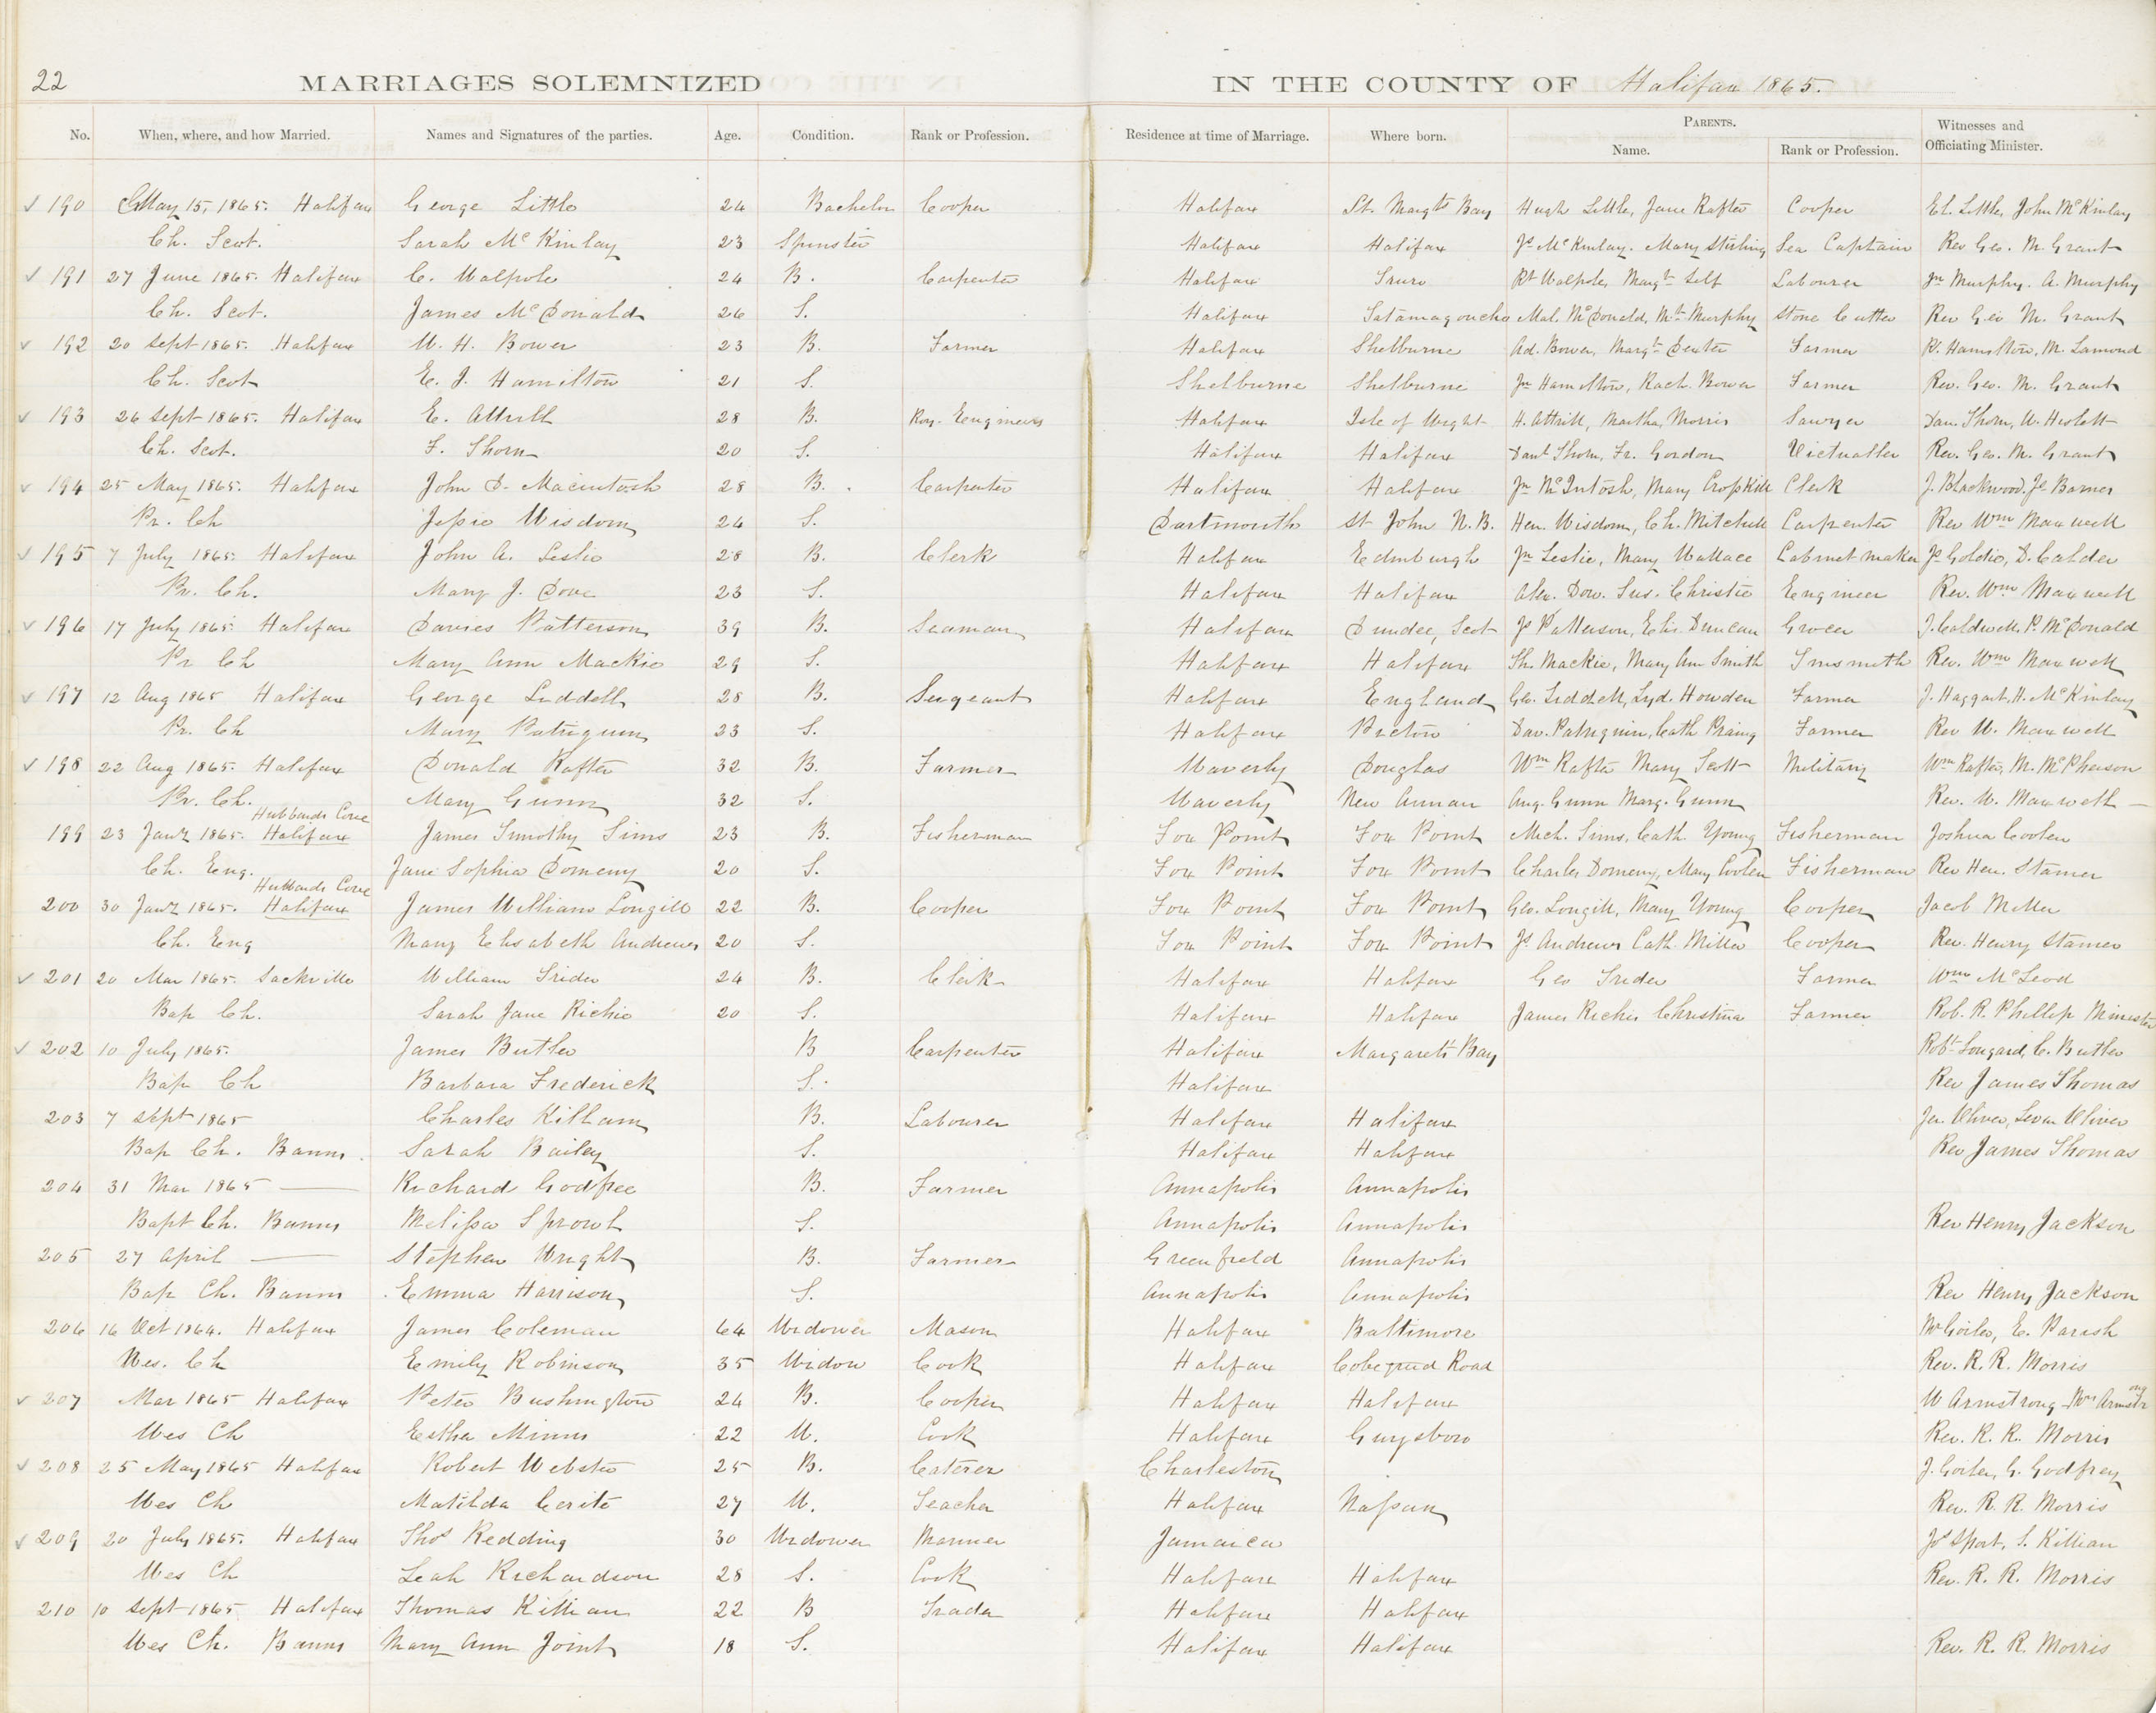 22 MARRIAGES SOLEMNIZED IN THE COUNTY OF Halifax 1865.
No. When, where, and how Married. Names and Signatures of the parties. Age. Condition. Rank or Profession. Residence at time of Marriage. Where born. PARENTS. Name. Rank or Profession. Witnesses and Officiating Minister.
190 May 15, 1865. Halifax George Little 24 Bachelor Cooper Halifax St. Margts Bay Hugh Little, Jane Rafter Cooper El. Little, John McKinlay
Ch. Scot. Sarah McKinlay 23 Spinster Halifax Halifax Js McKinlay. Mary Stirling Sea Captain Rev Geo. M. Grant
191 27 June 1865. Halifax C. Walpole 24 B. Carpenter Halifax Truro Rt Walpole, Margt Self Labourer Jn Murphy. A. Murphy
Ch. Scot. James McDonald 26 S. Halifax Tatamagouche Mal. McDonald, Mt Murphy Stone Cutter Rev Geo M. Grant
192 20 Sept 1865. Halifax W. H. Bower 23 B. Farmer Halifax Shelburne Ad. Bower, Margt Dexter Farmer R. Hamilton, M. Lamond
Ch. Scot E. J. Hamilton 21 S. Shelburne Shelburne Jn Hamilton, Rach. Bower Farmer Rev. Geo. M. Grant
193 26 Sept 1865. Halifax E. Attrill 28 B. Roy. Engineers Halifax Isle of Wight H. Attrill, Martha Morris Sawyer Dan. Thom, W. Heslett
Ch. Scot. F. Thom 20 S. Halifax Halifax Danl Thom, Fr. Gordon Victualler Rev. Geo. M. Grant
194 25 May 1865. Halifax John D. Macintosh 28 B. Carpenter Halifax Halifax Jn McIntosh, Mary Cropkill Clerk J. Blackwood, Js Barnes
Pr. Ch Jessie Wisdom 24 S. Dartmouth St John N. B. Hen. Wisdom, Ch. Mitchell Carpenter Rev Wm Maxwell
195 7 July 1865. Halifax John A. Leslie 28 B. Clerk Halifax Edinburgh Jn Leslie, Mary Wallace Cabinet maker Js Goldie, D. Calder
Pr. Ch. Mary J. Dove 23 S. Halifax Halifax Alex. Dow. Sus. Christie Engineer Rev. Wm Maxwell
196 17 July 1865. Halifax Davies Patterson 39 B. Seaman Halifax Dundee, Scot Js Patterson, Elis. Duncan Grocer J. Caldwell, P. McDonald
Pr Ch Mary Ann Mackie 29 S. Halifax Halifax Th. Mackie, Mary Ann Smith Tinsmith Rev. Wm Maxwell
197 12 Aug 1865 Halifax George Liddell 28 B. Sergeant Halifax England Geo. Liddell, Lyd. Howden Farmer J. Haggart, H. McKinlay
Pr. Ch Mary Patriquin 23 S. Halifax Pictou Dav. Patriquin, Cath Farmer Rev W. Maxwell
198 22 Aug 1865. Halifax Donald Rafter 32 B. Farmer Waverly Douglas Wm Rafter Mary Scott Military Wm Rafter, M. McPherson
Pr. Ch. Mary Gunn 32 S. Waverly New Annan Ang. Gunn Marg. Gunn Rev. W. Maxwell
Hubbards Cove
199 23 Jany 1865. Halifax James Timothy Sims 23 B. Fisherman Fox Point Fox Point Mich. Sims, Cath. Young Fisherman Joshua Coolen
Ch. Eng. Jane Sophia Domeny 20 S. Fox Point Fox Point Charles Domeny, Mary Coolen Fisherman Rev Hen. Stamer
Hubbards Cove
200 30 Jany 1865. Halifax James William Longill 22 B. Cooper Fox Point Fox Point Geo. Longill, Mary Young Cooper Jacob Miller
Ch. Eng Mary Elisabeth Andrews 20 S. Fox Point Fox Point Js Andrews Cath. Miller Cooper Rev. Henry Stamer
201 20 Mar 1865. Sackville William Trider 24 B. Clerk Halifax Halifax Geo Trider Farmer Wm McLeod
Bap Ch. Sarah Jane Richie 20 S. Halifax Halifax James Richie Christina Farmer Rob. R. Phillip Minister
202 10 July 1865. James Butler B Carpenter Halifax Margarets Bay Robt Longard, C. Butler
Bap Ch Barbara Frederick S. Halifax Rev James Thomas
203 7 Sept 1865 Charles Killam B. Labourer Halifax Halifax Jas. Oliver, Levm Oliver
Bap Ch. Banns. Sarah Bailey S. Halifax Halifax Rev James Thomas
204 31 Mar 1865 Richard Godfree B. Farmer Annapolis Annapolis
Bapt Ch. Banns Melissa Sprowl S. Annapolis Annapolis Rev Henry Jackson
205 27 April Stephen Wright B. Farmer Greenfield Annapolis
Bap Ch. Banns Emma Harrison S. Annapolis Annapolis Rev Henry Jackson
206 16 Oct 1864. Halifax James Coleman 64 Widower Mason Halifax Baltimore E. Parish
Wes. Ch Emily Robinson 35 Widow Cook Halifax Cobequid Road Rev. R. R. Morris
207 Mar 1865 Halifax Peter Bushington 24 B. Cooper Halifax Halifax W Armstrong Wm Armstrong
Wes Ch Esther Minns 22 W. Cook Halifax Guysboro Rev. R. R. Morris
208 25 May 1865 Halifax Robert Webster 25 B. Caterer Charleston J. Goiler, G. Godfrey
Wes Ch Matilda Cerite 27 W. Teacher Halifax Nassau Rev. R. R. Morris
209 20 July 1865. Halifax Thos Redding 30 Widower Mariner Jamaica Js Sport, S. Killian
Wes Ch Leah Richardson 28 S. Cook Halifax Halifax Rev. R. R. Morris
210 10 Sept 1865 Halifax Thomas Killian 22 B Trader Halifax Halifax
Wes Ch. Banns Mary Ann Joint 18 S. Halifax Halifax Rev. R. R. Morris